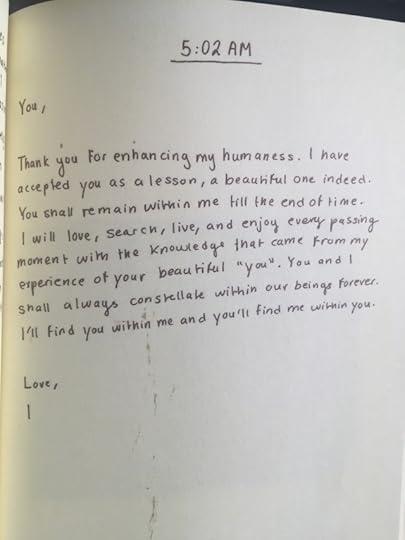 5:02 AM
You,
Thank you for enhancing my humaness. I have
accepted you as a lesson, a beautiful one indeed.
You shall remain within me till the end of time.
I will love, search, live, and enjoy every passing
moment with the knowledge that came from my
experience of your beautiful "you". You and I
shall always constellate within our beings forever.
I'll find you within me and you'll find me within you.
Love,
I